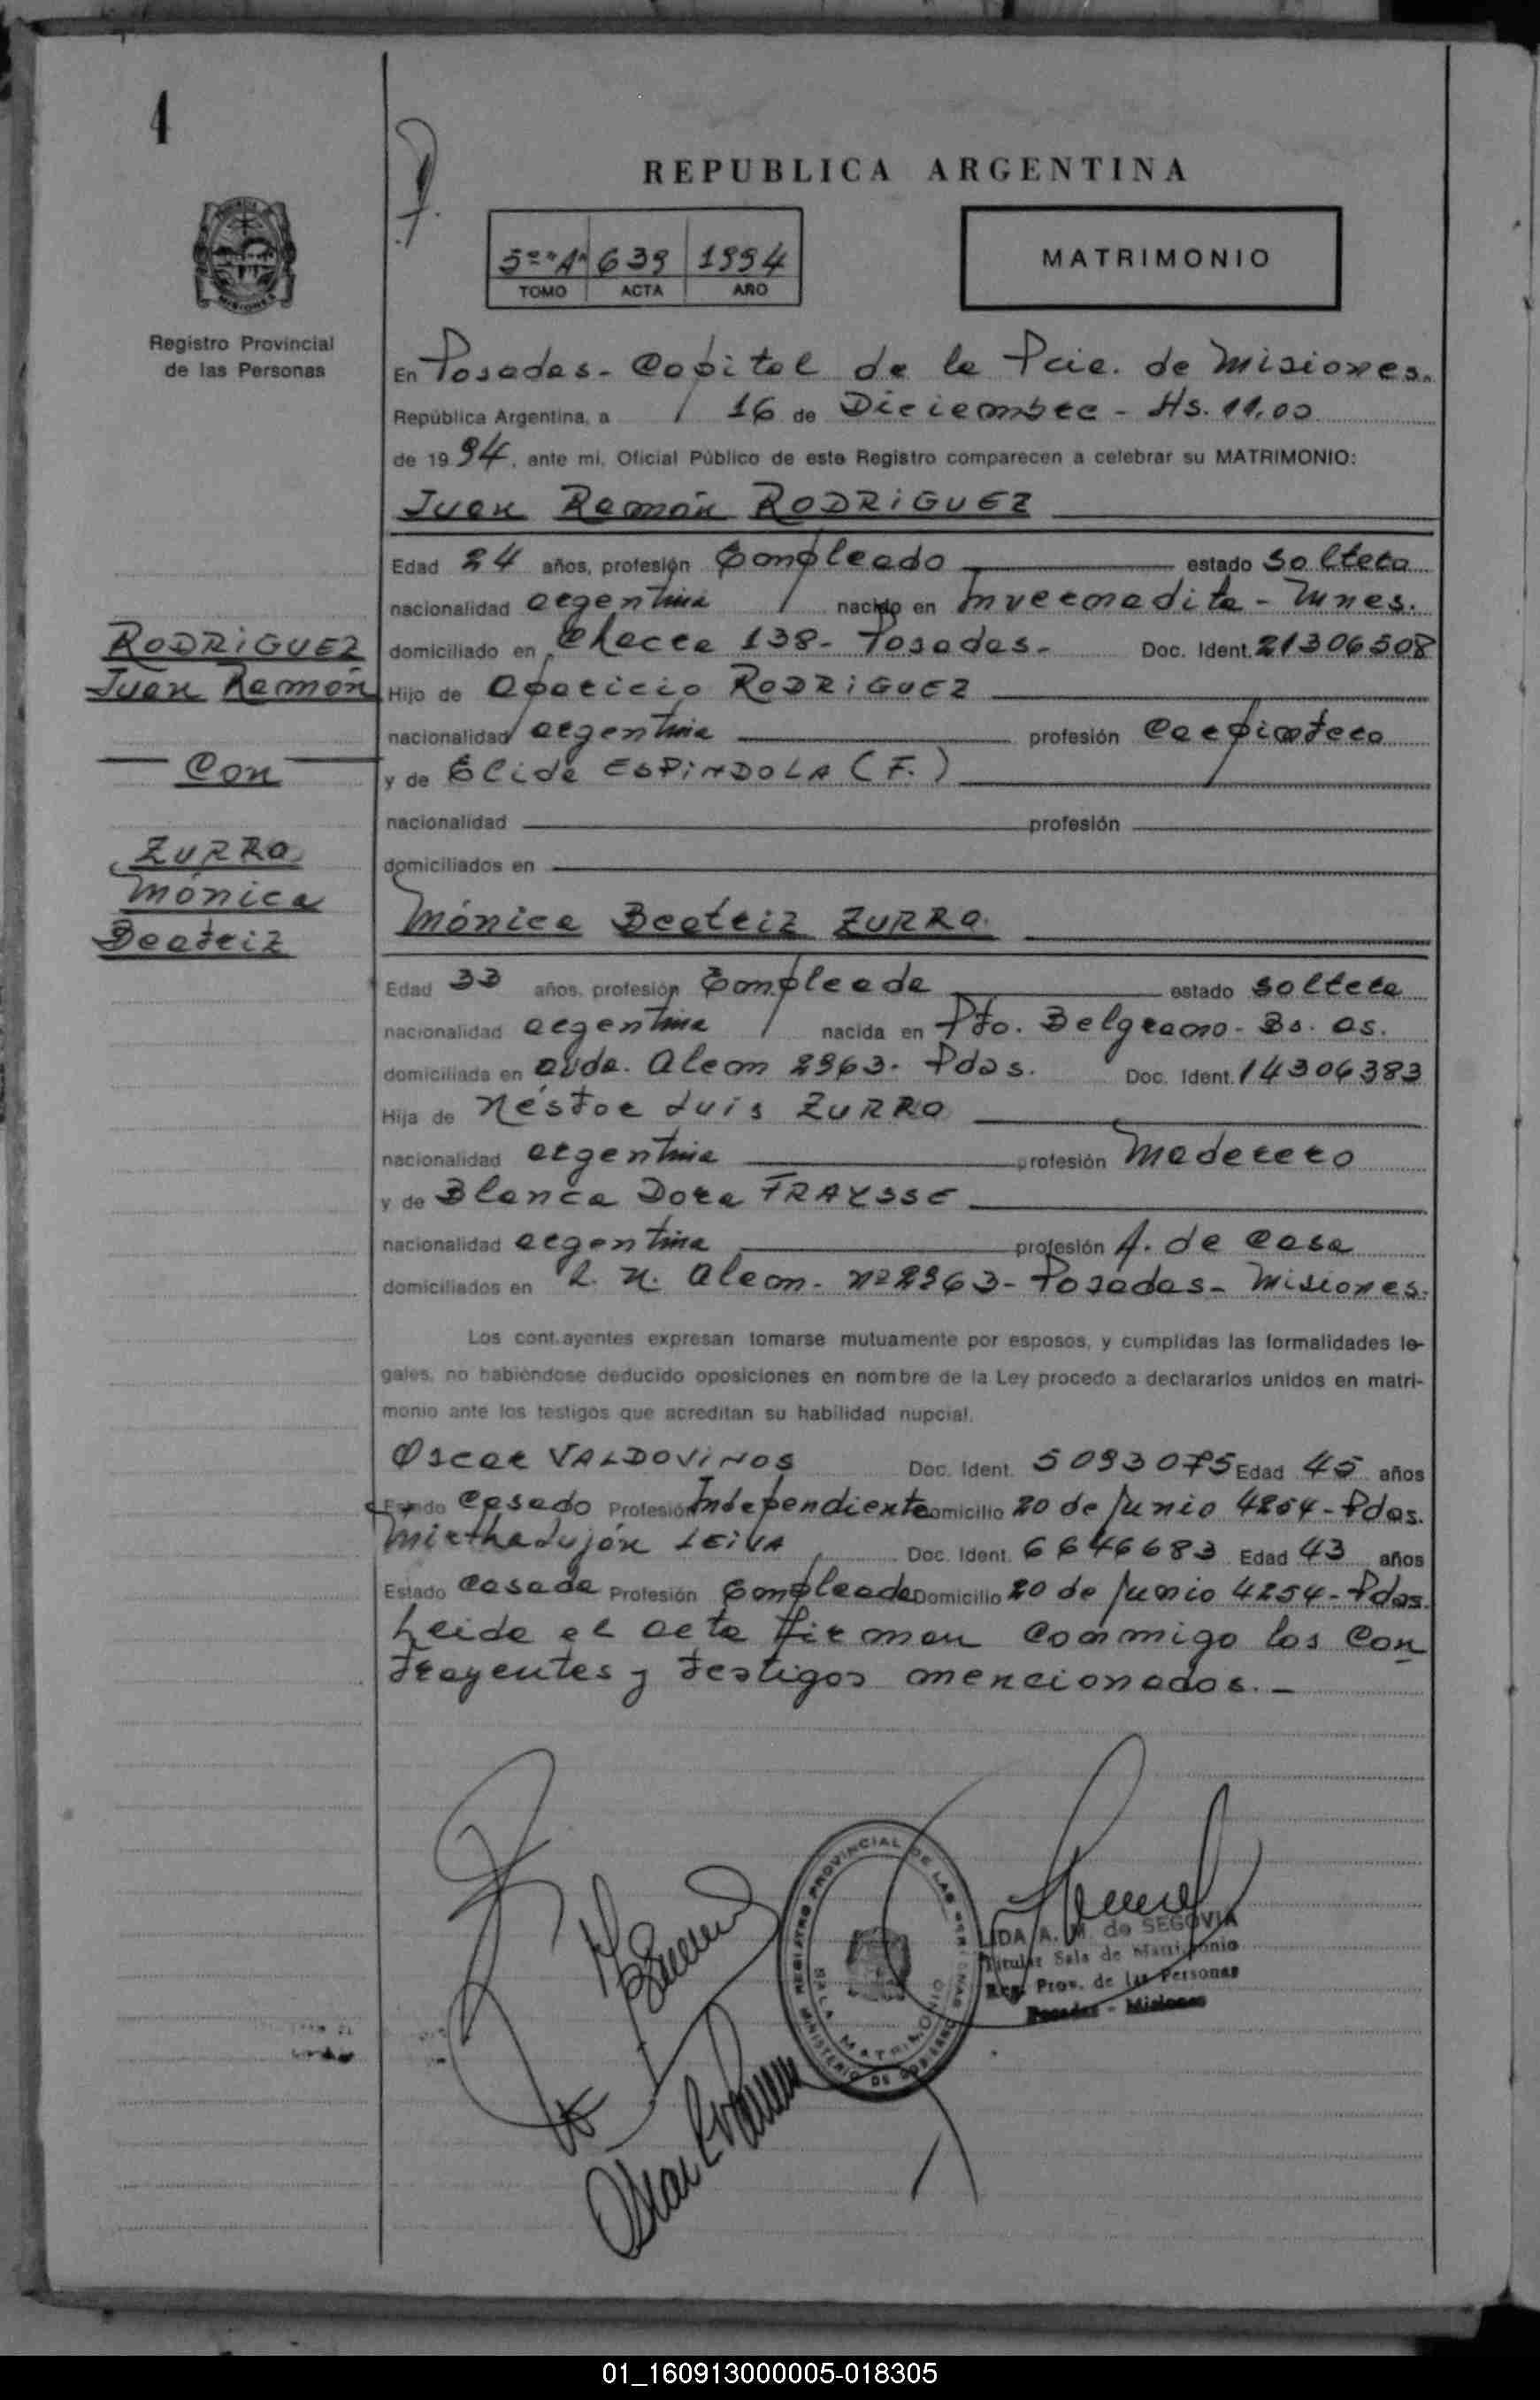 4
REPUBLICA ARGENTINA
5º "A" 639 1994
TOMO ACTA AÑO
MATRIMONIO
Registro Provincial
de las Personas
En Posadas - Capital de la Pcia. de Misiones.
República Argentina, a 16 de Diciembre - Hs. 11,00
de 1994, ante mi, Oficial Público de este Registro comparecen a celebrar su MATRIMONIO:
Juan Ramón RODRIGUEZ
Edad 24 años, profesión Empleado estado soltero
nacionalidad argentina nacido en Invernadita - Mnes.
domiciliado en Chacra 138 - Posadas - Doc. Ident. 21306508
RODRIGUEZ
Juan Ramón
Hijo de Aparicio RODRIGUEZ
nacionalidad argentina profesión Carpintero
Con
y de Elida ESPINDOLA (F.)
nacionalidad profesión
domiciliados en
ZURRO
Mónica
Beatriz
Mónica Beatriz ZURRO
Edad 33 años, profesión Empleada estado soltera
nacionalidad argentina nacida en Pto. Belgrano - Bs. As.
domiciliada en Avda. Alem 2963 - Pdas. Doc. Ident. 14306383
Hija de Néstor Luis ZURRO
nacionalidad argentina profesión Maderero
y de Blanca Dora FRAYSSE
nacionalidad argentina profesión A. de Casa
domiciliados en L. N. Alem - Nº 2963 - Posadas - Misiones.
Los contrayentes expresan tomarse mutuamente por esposos, y cumplidas las formalidades le-
gales, no habiéndose deducido oposiciones en nombre de la Ley procedo a declararlos unidos en matri-
monio ante los testigos que acreditan su habilidad nupcial.
Oscar VALDOVINOS Doc. Ident. 5093075 Edad 45 años
Estado Casado Profesión Independiente Domicilio 20 de Junio 4254 - Pdas.
Mirtha Luján LEIVA Doc. Ident. 6646683 Edad 43 años
Estado Casada Profesión Empleada Domicilio 20 de Junio 4254 - Pdas.
Leida el acta firman conmigo los con
trayentes y testigos mencionados. -
REGISTRO PROVINCIAL DE LAS PERSONAS
SALA MATRIMONIO
MINISTERIO DE GOBIERNO
LIDA A. M. de SEGOVIA
Titular Sala de Matrimonio
Reg. Prov. de las Personas
Posadas - Misiones
01_160913000005-018305